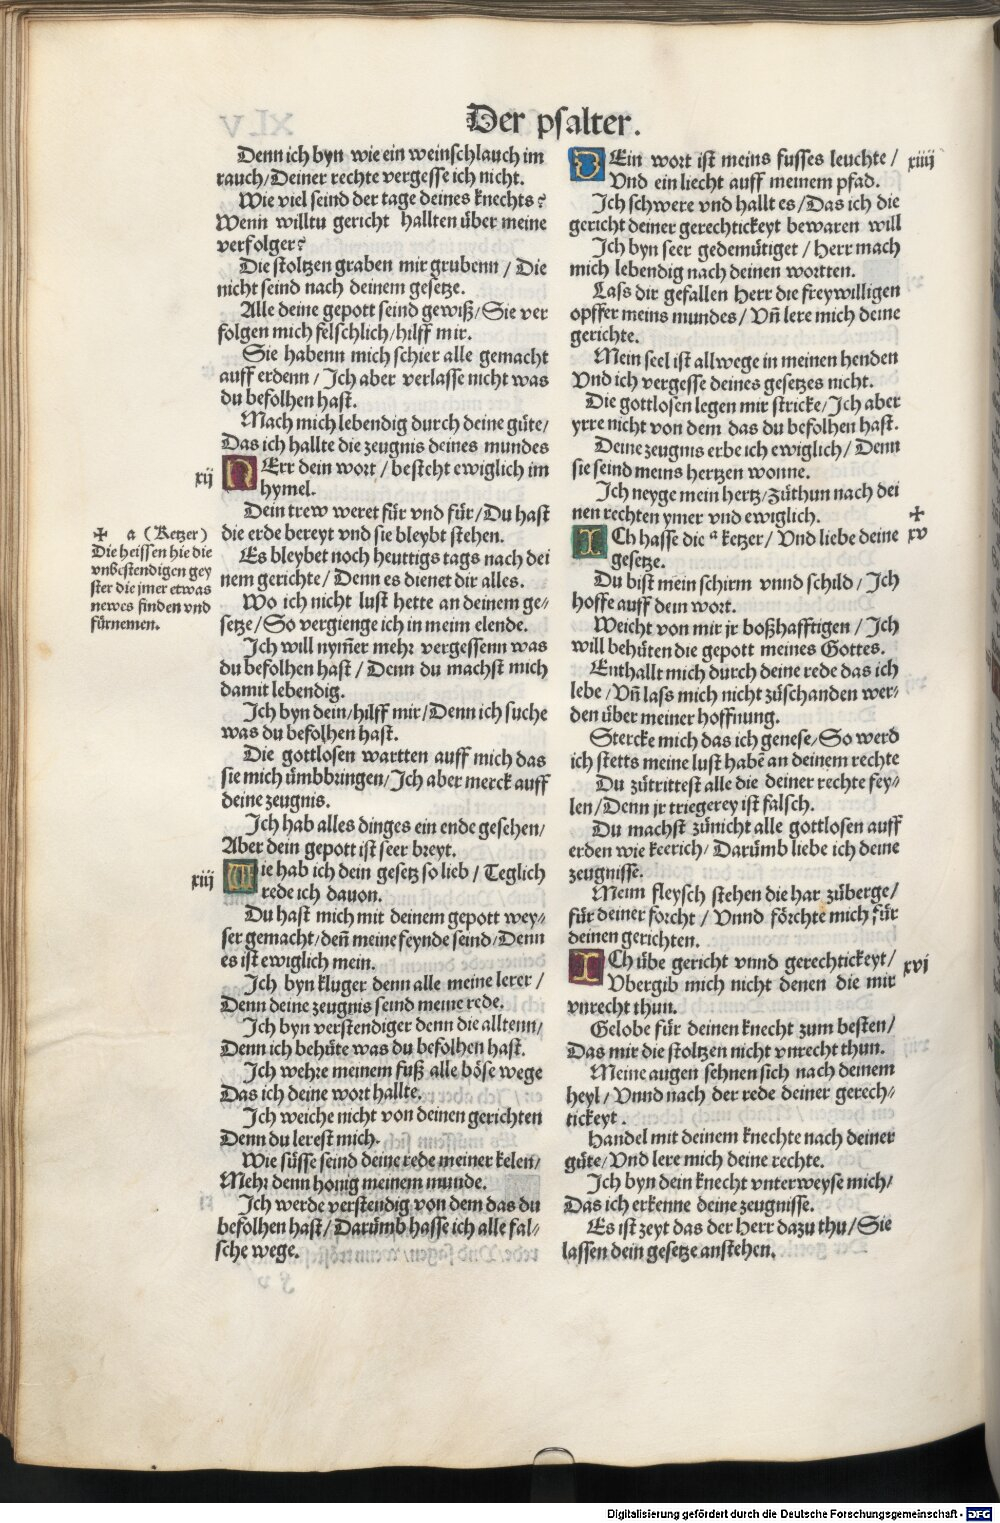 Der psalter.
Denn ich byn wie ein weinschlauch im
rauch/Deiner rechte vergesse ich nicht.
Wie viel seind der tage deines knechts?
Wenn willtu gericht hallten über meine
verfolger?
Die stoltzen graben mir grubenn / Die
nicht seind nach deinem gesetze.
Alle deine gepott seind gewiß/Sie ver
folgen mich felschlich/hilff mir.
Sie habenn mich schier alle gemacht
auff erdenn / Ich aber verlasse nicht was
du befolhen hast.
Mach mich lebendig durch deine güte/
Das ich hallte die zeugnis deines mundes
xij
HErr dein wort / besteht ewiglich im
hymel.
Dein trew weret für vnd für/Du hast
die erde bereyt vnd sie bleybt stehen.
Es bleybet noch heuttigs tags nach dei
nem gerichte / Denn es dienet dir alles.
Wo ich nicht lust hette an deinem ge⸗
setze/So vergienge ich in meim elende.
Ich will nym̄er mehr vergessenn was
du befolhen hast / Denn du machst mich
damit lebendig.
Ich byn dein/hilff mir/Denn ich suche
was du befolhen hast.
Die gottlosen wartten auff mich das
sie mich ümbbringen/Ich aber merck auff
deine zeugnis.
Ich hab alles dinges ein ende gesehen/
Aber dein gepott ist seer breyt.
xiij
Wie hab ich dein gesetz so lieb / Teglich
rede ich dauon.
Du hast mich mit deinem gepott wey⸗
ser gemacht/deñ meine feynde seind/Denn
es ist ewiglich mein.
Ich byn kluger denn alle meine lerer /
Denn deine zeugnis seind meine rede.
Ich byn verstendiger denn die alltenn/
Denn ich behüte was du befolhen hast.
Ich wehre meinem fuß alle böse wege
Das ich deine wort hallte.
Ich weiche nicht von deinen gerichten
Denn du lerest mich.
Wie süsse seind deine rede meiner kelen/
Mehr denn honig meinem munde.
Ich werde verstendig von dem das du
befolhen hast/Darümb hasse ich alle fal⸗
sche wege.
✠ a (Ketzer)
Die heissen hie die
vnbestendigen gey
ster die jmer etwas
newes finden vnd
fürnemen.
DEin wort ist meins fusses leuchte /
xiiij
Vnd ein liecht auff meinem pfad.
Ich schwere vnd hallt es/Das ich die
gericht deiner gerechtickeyt bewaren will
Ich byn seer gedemütiget / Herr mach
mich lebendig nach deinen wortten.
Lass dir gefallen Herr die freywilligen
opffer meins mundes/ Vñ lere mich deine
gerichte.
Mein seel ist allwege in meinen henden
Vnd ich vergesse deines gesetzes nicht.
Die gottlosen legen mir stricke/Ich aber
yrre nicht von dem das du befolhen hast.
Deine zeugnis erbe ich ewiglich/ Denn
sie seind meins hertzen wonne.
Ich neyge mein hertz/züthun nach dei
nen rechten ymer vnd ewiglich.
✠
ICh hasse die a ketzer / Vnd liebe deine
xv
gesetze.
Du bist mein schirm vnnd schild / Ich
hoffe auff dein wort.
Weicht von mir jr boßhafftigen / Ich
will behüten die gepott meines Gottes.
Enthallt mich durch deine rede das ich
lebe /Vñ lass mich nicht züschanden wer⸗
den über meiner hoffnung.
Stercke mich das ich genese/So werd
ich stetts meine lust habē an deinem rechte
Du zütrittest alle die deiner rechte fey⸗
len/Denn jr triegerey ist falsch.
Du machst zünicht alle gottlosen auff
erden wie keerich/ Darümb liebe ich deine
zeugnisse.
Meim fleysch stehen die har züberge/
für deiner forcht / Vnnd förchte mich für
deinen gerichten.
ICh übe gericht vnnd gerechtickeyt/
xvj
Vbergib mich nicht denen die mir
vnrecht thun.
Gelobe für deinen knecht zum besten/
Das mir die stoltzen nicht vnrecht thun.
Meine augen sehnen sich nach deinem
heyl / Vnnd nach der rede deiner gerech⸗
tickeyt.
Handel mit deinem knechte nach deiner
güte/Vnd lere mich deine rechte.
Ich byn dein knecht vnterweyse mich/
Das ich erkenne deine zeugnisse.
Es ist zeyt das der Herr dazu thu/Sie
lassen dein gesetze anstehen.
Digitalisierung gefördert durch die Deutsche Forschungsgemeinschaft - DFG